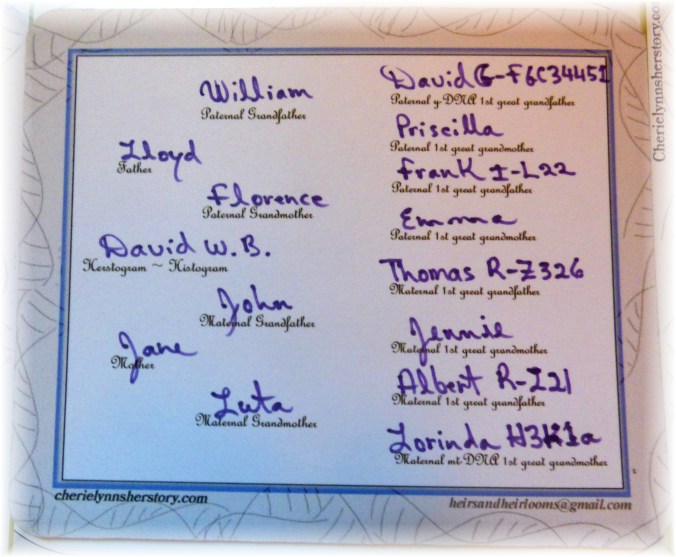 William
Paternal Grandfather
Lloyd
Father
Florence
Paternal Grandmother
David W. B.
Herstogram ~ Histogram
John
Maternal Grandfather
Jane
Mother
Luta
Maternal Grandmother
David G-F6C34451
Paternal y-DNA 1st great grandfather
Priscilla
Paternal 1st great grandmother
Frank I-L22
Paternal 1st great grandfather
Emma
Paternal 1st great grandmother
Thomas R-Z326
Maternal 1st great grandfather
Jennie
Maternal 1st great grandmother
Albert R-Z21
Maternal 1st great grandfather
Lorinda H3k1a
Maternal mt-DNA 1st great grandmother
cherielynnsherstory.com
heirsandheirlooms@gmail.com
Cherielynnsherstory.co